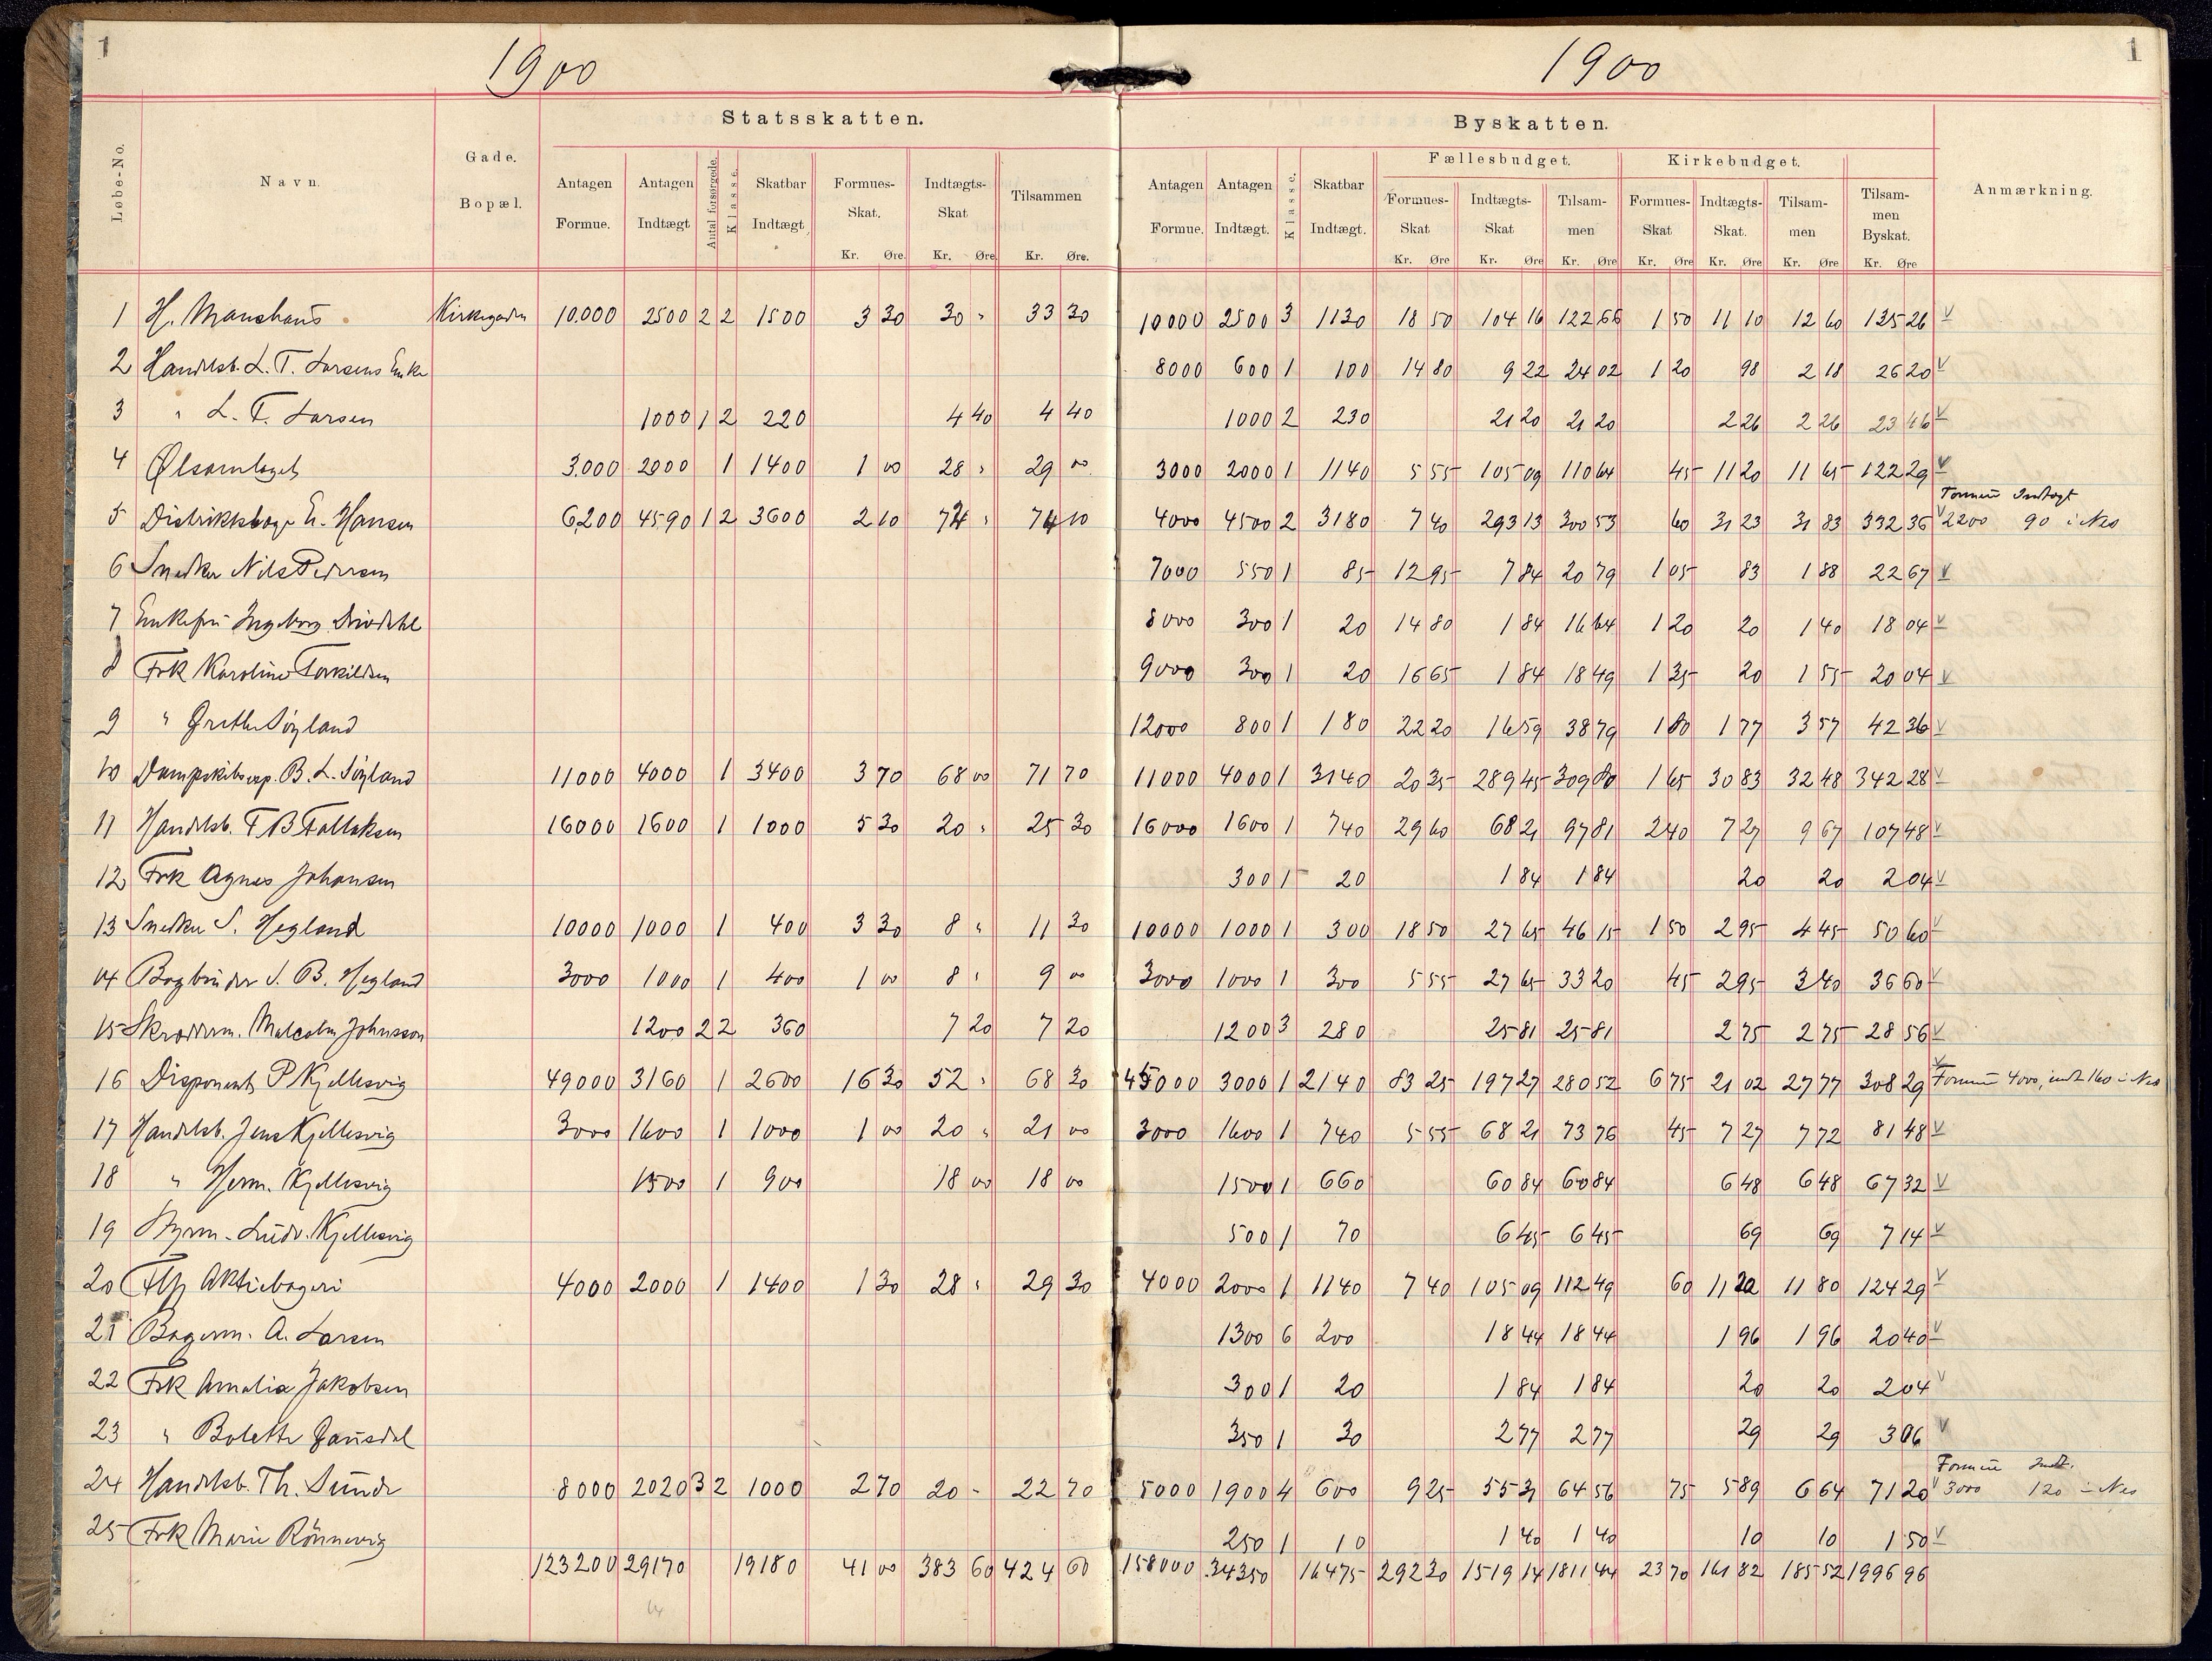 1
1900
1900
1
Statsskatten.
Byskatten.
Løbe-No.
Navn.
Gade.
Bopæl.
Antagen Formue.
Antagen Indtægt
Antal forsørgede.
Klasse.
Skatbar Indtægt
Formues-Skat. Kr. Øre.
Indtægts-Skat Kr. Øre
Tilsammen Kr. Øre.
Antagen Formue.
Antagen Indtægt.
Klasse.
Skatbar Indtægt.
Fællesbudget.
Formues-Skat Kr. Øre
Indtægts-Skat Kr. Øre
Tilsam-men Kr. Øre
Kirkebudget.
Formues-Skat Kr. Øre
Indtægts-Skat. Kr. Øre
Tilsam-men Kr. Øre
Tilsam-men Byskat. Kr. Øre
Anmærkning.
1 H. Kirkegaden 10.000 2500 2 2 1500 3 30 30 " 33 30 10000 2500 3 1130 18 50 104 16 122 66 1 50 11 10 12 60 135 26 V
2 Handelsb. L. T. Larsens Enke 8000 600 1 100 14 80 9 22 24 02 1 20 98 2 18 26 20 V
3 " L. T. Larsen 1000 1 2 220 4 40 4 40 1000 2 230 21 20 21 20 2 26 2 26 23 46 V
4 Ølsamlaget 3.000 2000 1 1400 1 00 28 " 29 00 3000 2000 1 1140 5 55 105 09 110 64 45 11 20 11 65 122 29 V
Formue Indtægt
5 Hansen 6,200 4590 1 2 3600 2 10 72 " 74 10 4000 4500 2 3180 7 40 293 13 300 53 60 31 23 31 83 332 36 V 2200 90 i Nes
6 Snedker Nils Pedersen 7000 550 1 85 12 95 7 84 20 79 1 05 83 1 88 22 67 V
7 Enkefru Ingeborg 8000 300 1 20 14 80 1 84 16 64 1 20 20 1 40 18 04 V
8 Frk Karoline Torkildsen 9000 300 1 20 16 65 1 84 18 49 1 35 20 1 55 20 04 V
9 " Grethe Søyland 12000 800 1 180 22 20 16 59 38 79 1 80 1 77 3 57 42 36 V
10 Dampskibsexp. B. L. Søyland 11000 4000 1 3400 3 70 68 00 71 70 11000 4000 1 3140 20 35 289 45 309 80 1 65 30 83 32 48 342 28 V
11 Handelsb. T B Tallaksen 16000 1600 1 1000 5 30 20 " 25 30 16000 1600 1 740 29 60 68 21 97 81 2 40 7 27 9 67 107 48 V
12 Frk Agnes Johansen 300 1 20 1 84 1 84 20 20 2 04 V
13 Snedker S. Hegland 10000 1000 1 400 3 30 8 " 11 30 10000 1000 1 300 18 50 27 65 46 15 1 50 2 95 4 45 50 60 V
14 Bogbinder S. B. Hegland 3000 1000 1 400 1 00 8 " 9 00 3000 1000 1 300 5 55 27 65 33 20 45 2 95 3 40 36 60 V
15 Skrædderm. Malcolm Johnsson 1200 2 2 360 7 20 7 20 1200 3 280 25 81 25 81 2 75 2 75 28 56 V
16 Disponent P Kjellesvig 49000 3160 1 2600 16 30 52 " 68 30 45000 3000 1 2140 83 25 197 27 280 52 6 75 21 02 27 77 308 29 V Formue 4000, indt 160 i Nes
17 Handelsb. Jens Kjellesvig 3000 1600 1 1000 1 00 20 " 21 00 3000 1600 1 740 5 55 68 21 73 76 45 7 27 7 72 81 48 V
18 " Herm. Kjellesvig 1500 1 900 18 00 18 00 1500 1 660 60 84 60 84 6 48 6 48 67 32 V
19 Styrm. Ludv. Kjellesvig 500 1 70 6 45 6 45 69 69 7 14 V
20 Aktiebageri 4000 2000 1 1400 1 30 28 " 29 30 4000 2000 1 1140 7 40 105 09 112 49 60 11 20 11 80 124 29 V
21 Bagerm. A. Larsen 1300 6 200 18 44 18 44 1 96 1 96 20 40 V
22 Frk Amalia Jakobsen 300 1 20 1 84 1 84 20 20 2 04 V
23 " Bolette Gausdal 350 1 30 2 77 2 77 29 29 3 06 V
Formue Indt.
24 Handelsb. Th. Sunde 8000 2020 3 2 1000 2 70 20 - 22 70 5000 1900 4 600 9 25 55 31 64 56 75 5 89 6 64 71 20 V 3000 120 i Nes
25 Frk Marie Rönnevig 250 1 10 1 40 1 40 10 10 1 50 V
123200 29170 19180 41 00 383 60 424 60 158000 34350 16475 292 30 1519 14 1811 44 23 70 161 82 185 52 1996 96